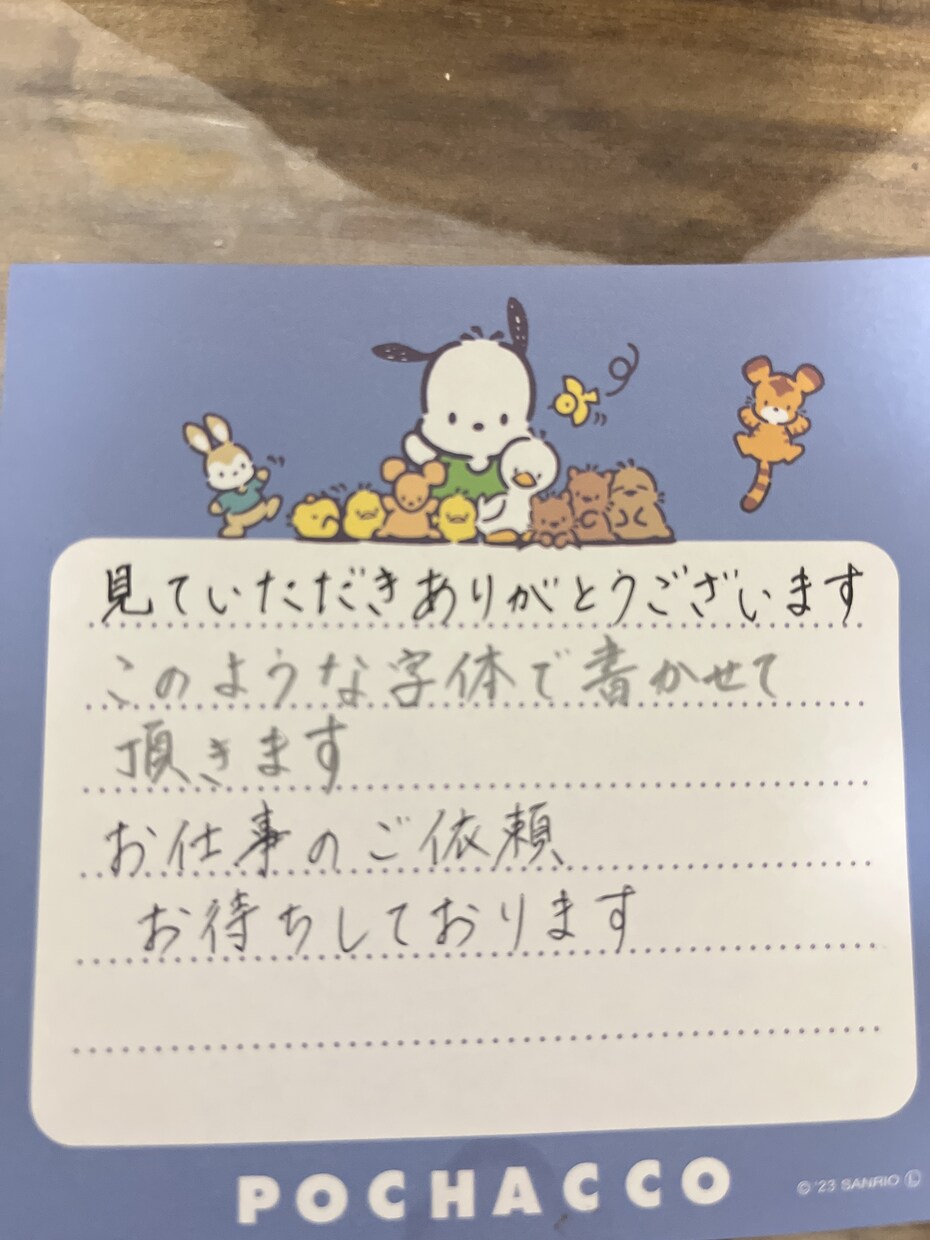 見ていただきありがとうございます
このような字体で書かせて
頂きます
お仕事のご依頼
お待ちしております
POCHACCO
© '23 SANRIO Ⓛ